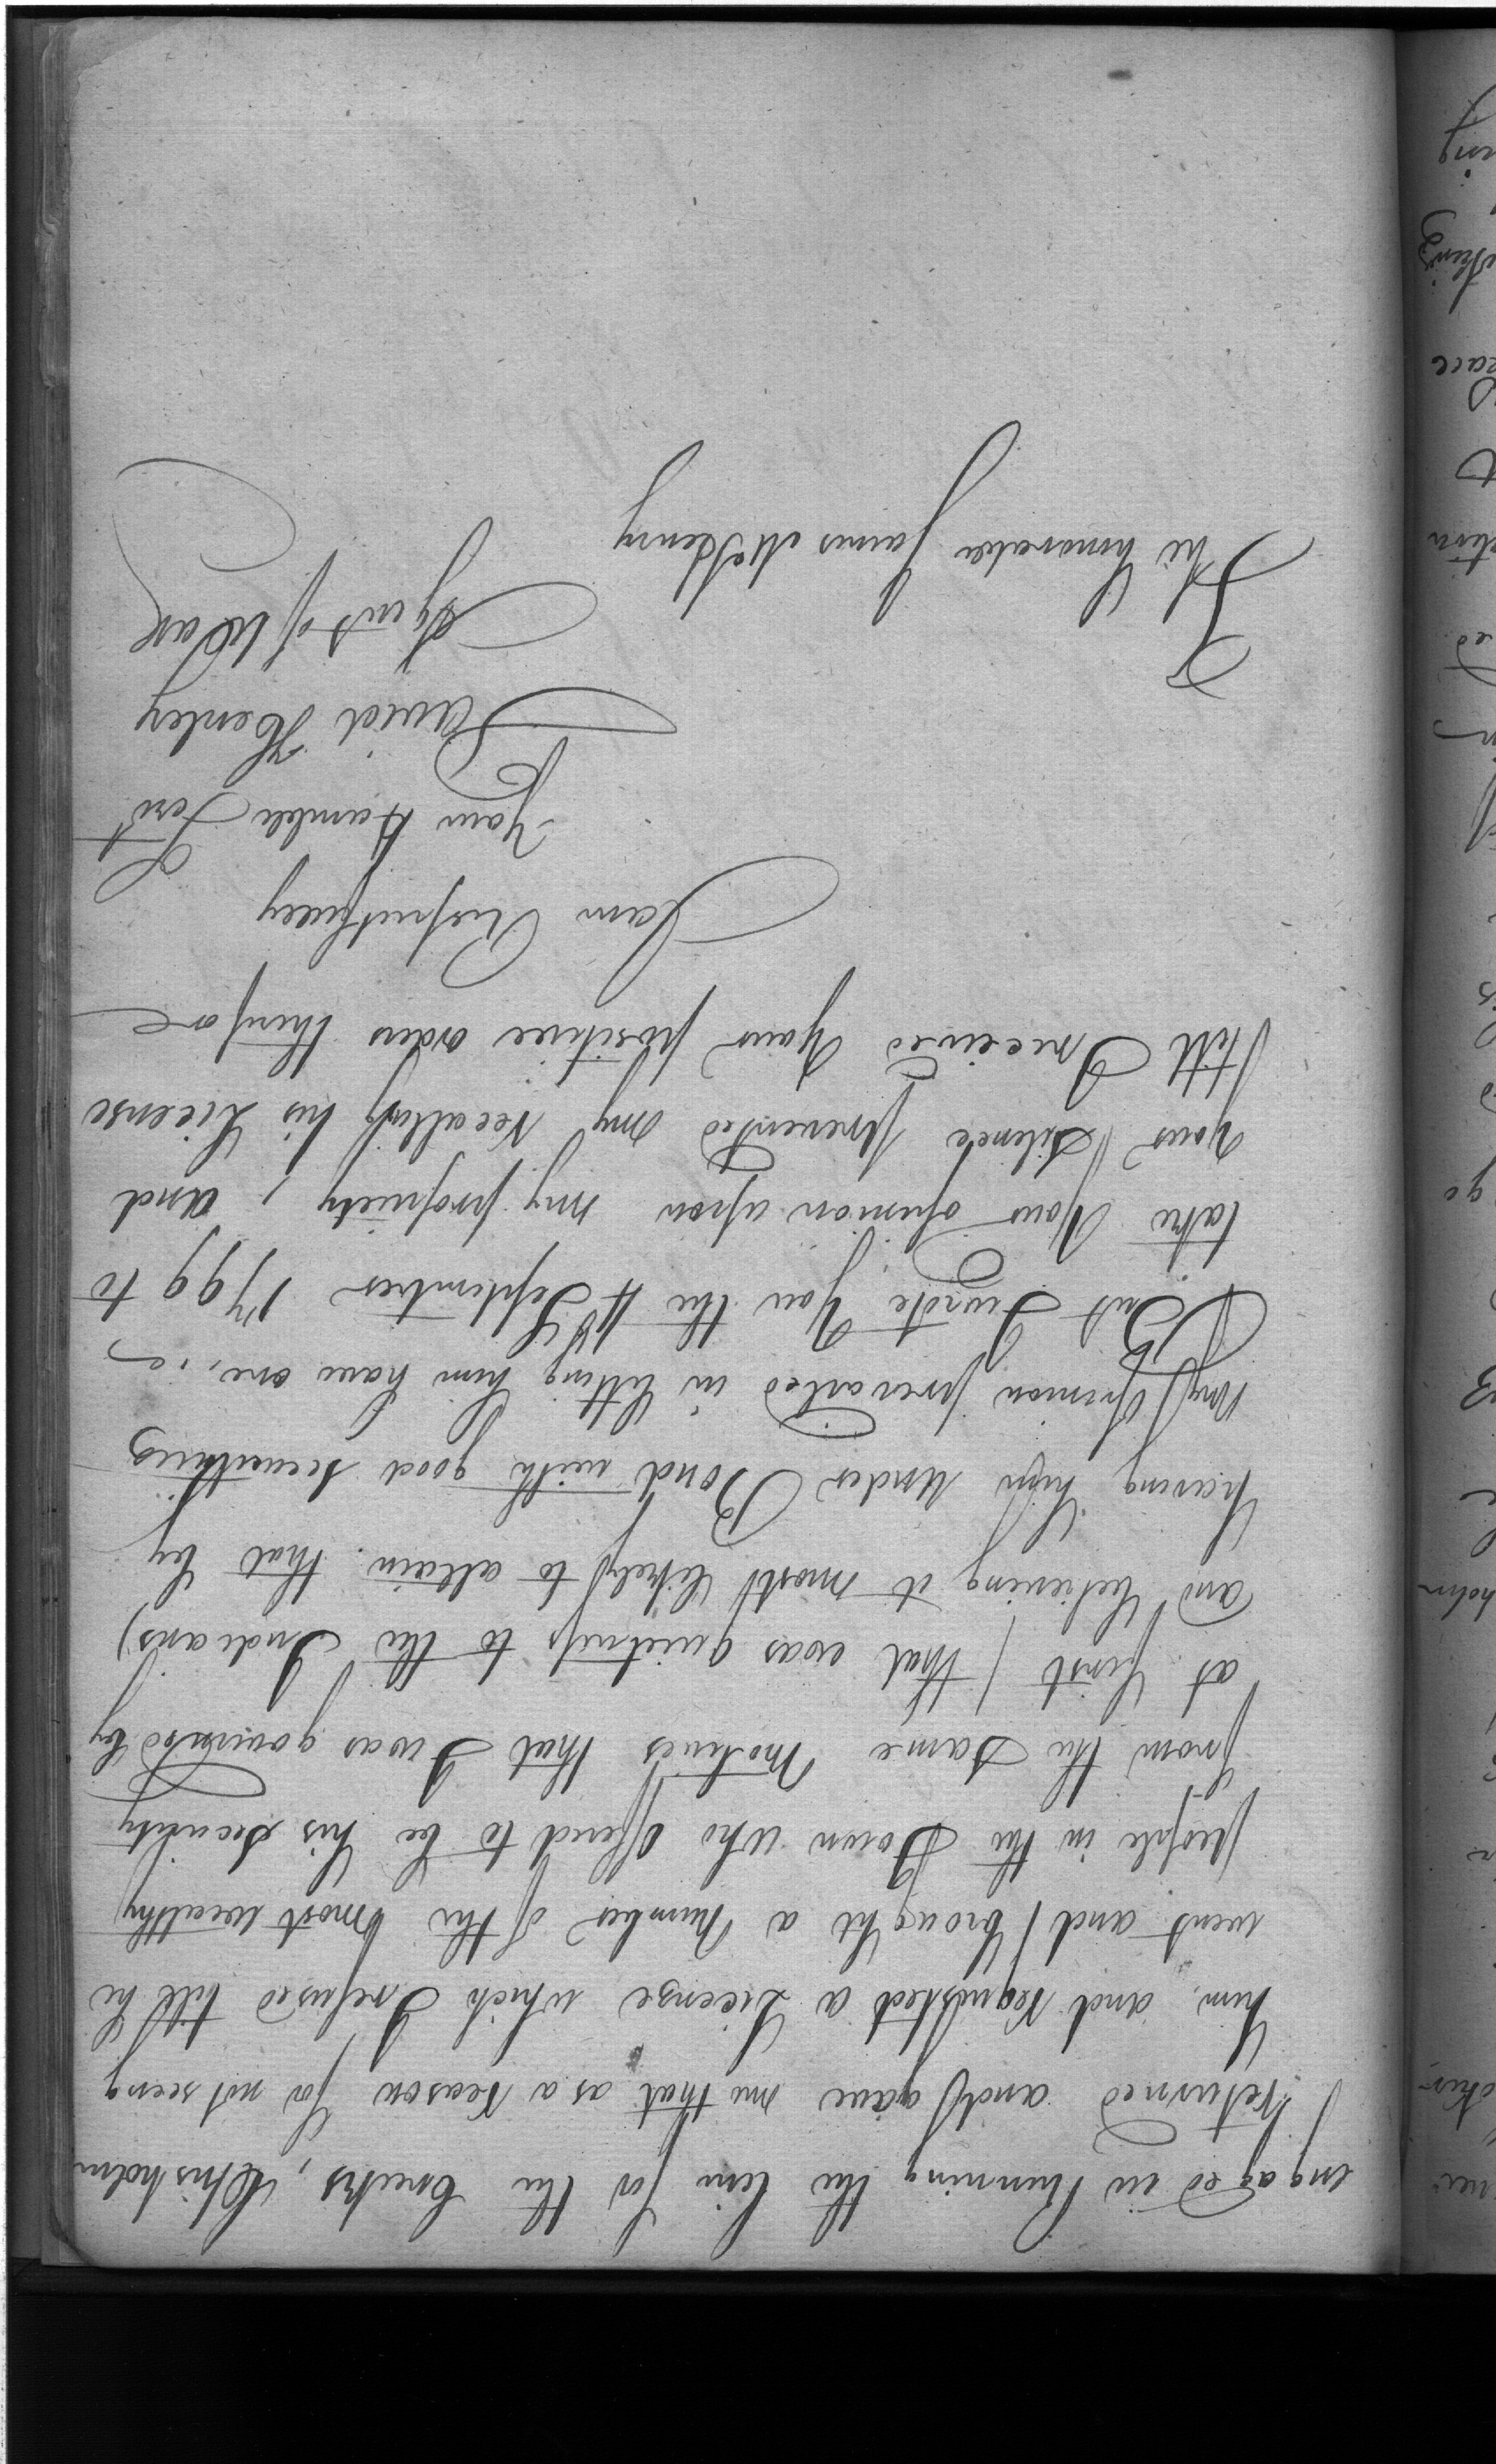 engaged in Running the line for the Creeks, Chisholm
returned and gave me that as a reason for not seeing
him, and requested a License which I refused till he
went and brought a number of the most wealthy
people in the Town who offered to be his security
from the same motives that I was governed by
at first (that was quietness to the Indians)
and believing it most likely to attain that by
having him under Bond with good securities
my Opinion prevailed in letting him have one,
But I wrote You the 4th September 1799 to
take Your opinion upon my propriety, and
your silence prevented my recalling his License
till I received Your positive orders therefore
I am Respectfully
Your Humble Servt
David Henley
Agent of War
To
The Honorable James McHenry